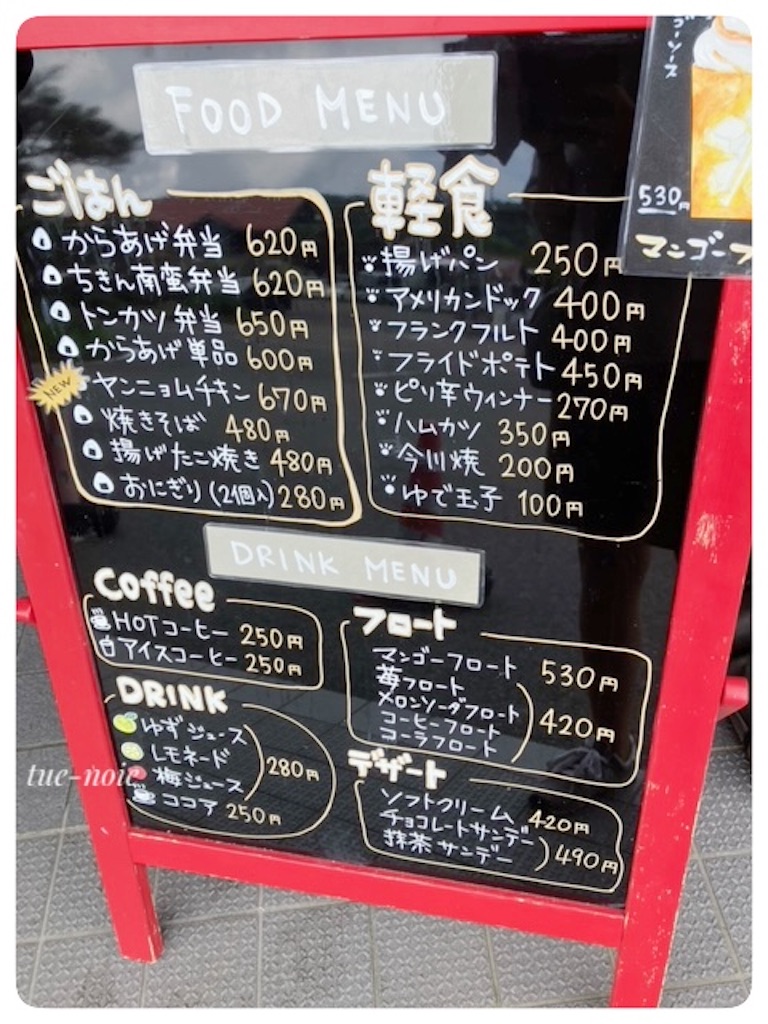 FOOD MENU
ごはん
からあげ弁当 620円
ちきん南蛮弁当 620円
トンカツ弁当 650円
からあげ単品 600円
NEW
ヤンニョムチキン 670円
焼きそば 480円
揚げたこ焼き 480円
おにぎり(2個入) 280円
軽食
揚げパン 250円
アメリカンドック 400円
フランクフルト 400円
フライドポテト 450円
ピリ辛ウィンナー 270円
ハムカツ 350円
今川焼 200円
ゆで玉子 100円
ゴーソース
530円
マンゴーフ
DRINK MENU
Coffee
HOTコーヒー 250円
アイスコーヒー 250円
DRINK
ゆずジュース
レモネード
梅ジュース
280円
ココア 250円
フロート
マンゴーフロート 530円
苺フロート
メロンソーダフロート
コーヒーフロート
コーラフロート
420円
デザート
ソフトクリーム 420円
チョコレートサンデー
抹茶サンデー
490円